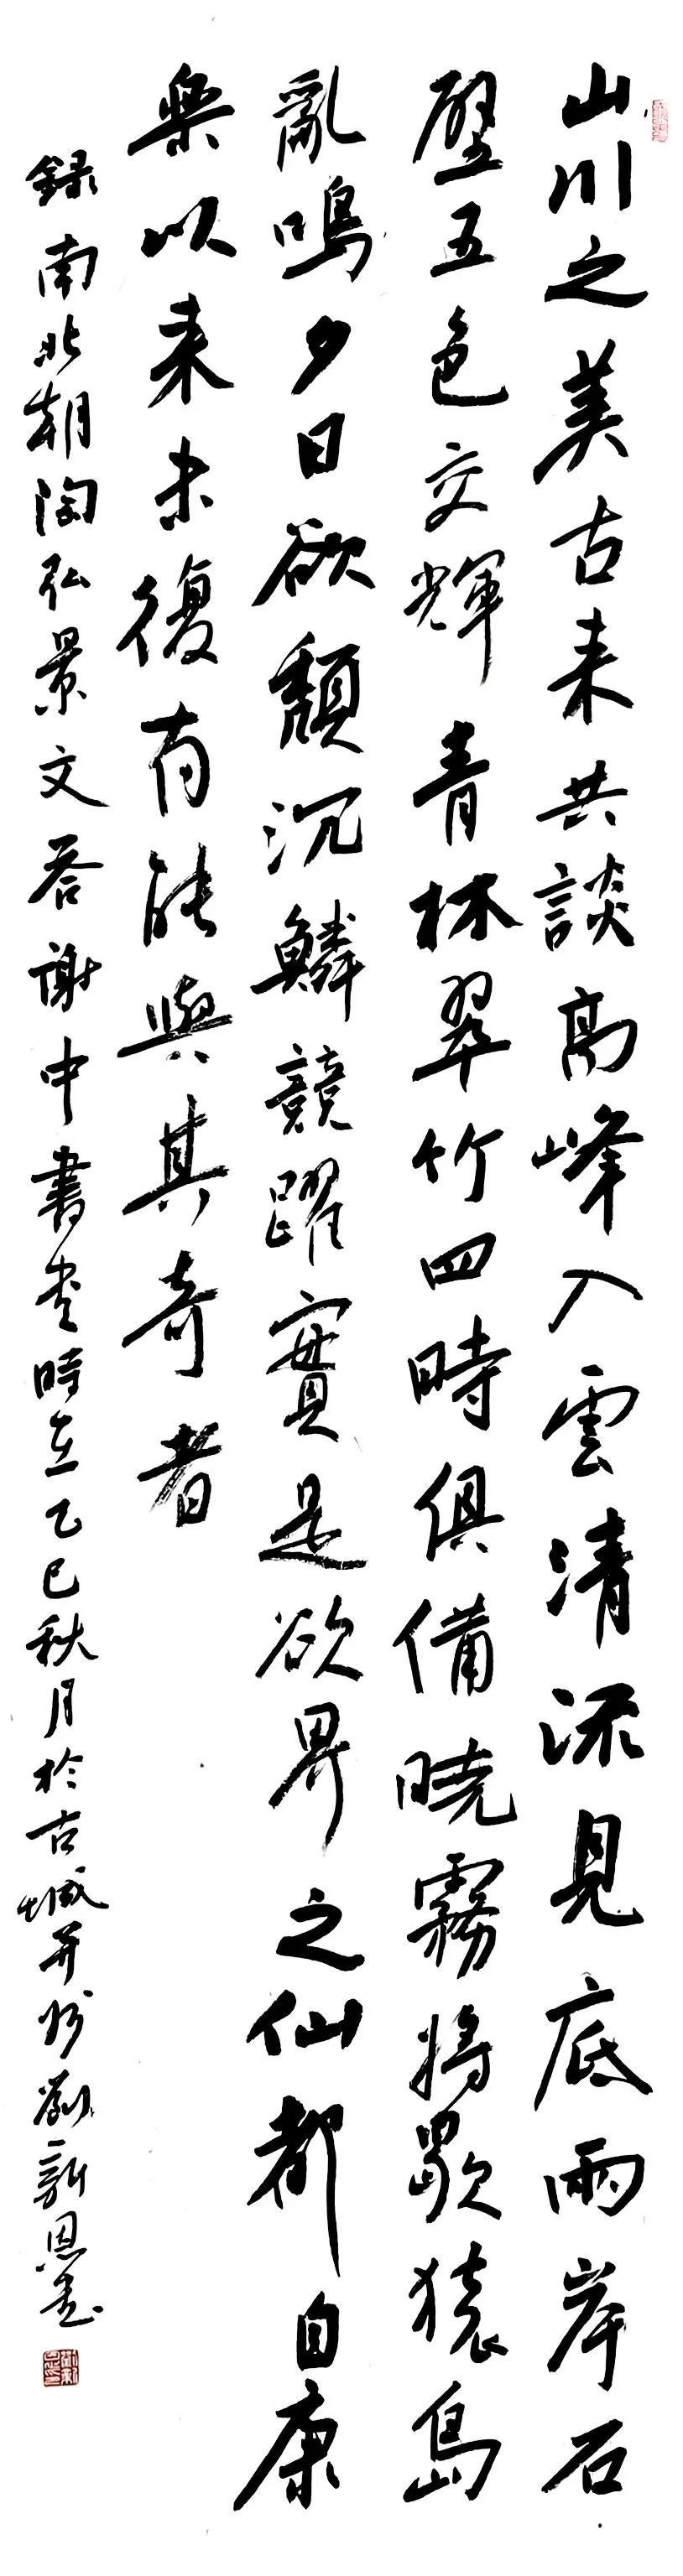 山川之美古来共談高峰入雲清流見底兩岸石
壁五色交輝青林翠竹四時俱備曉霧將歇猿島
亂鳴夕日欲頹沉鱗競躍實是欲界之仙都自康
樂以来未復有能與其奇者
録南北朝陶弘景文答謝中書书時在乙巳秋月於古城并州劉新恩書